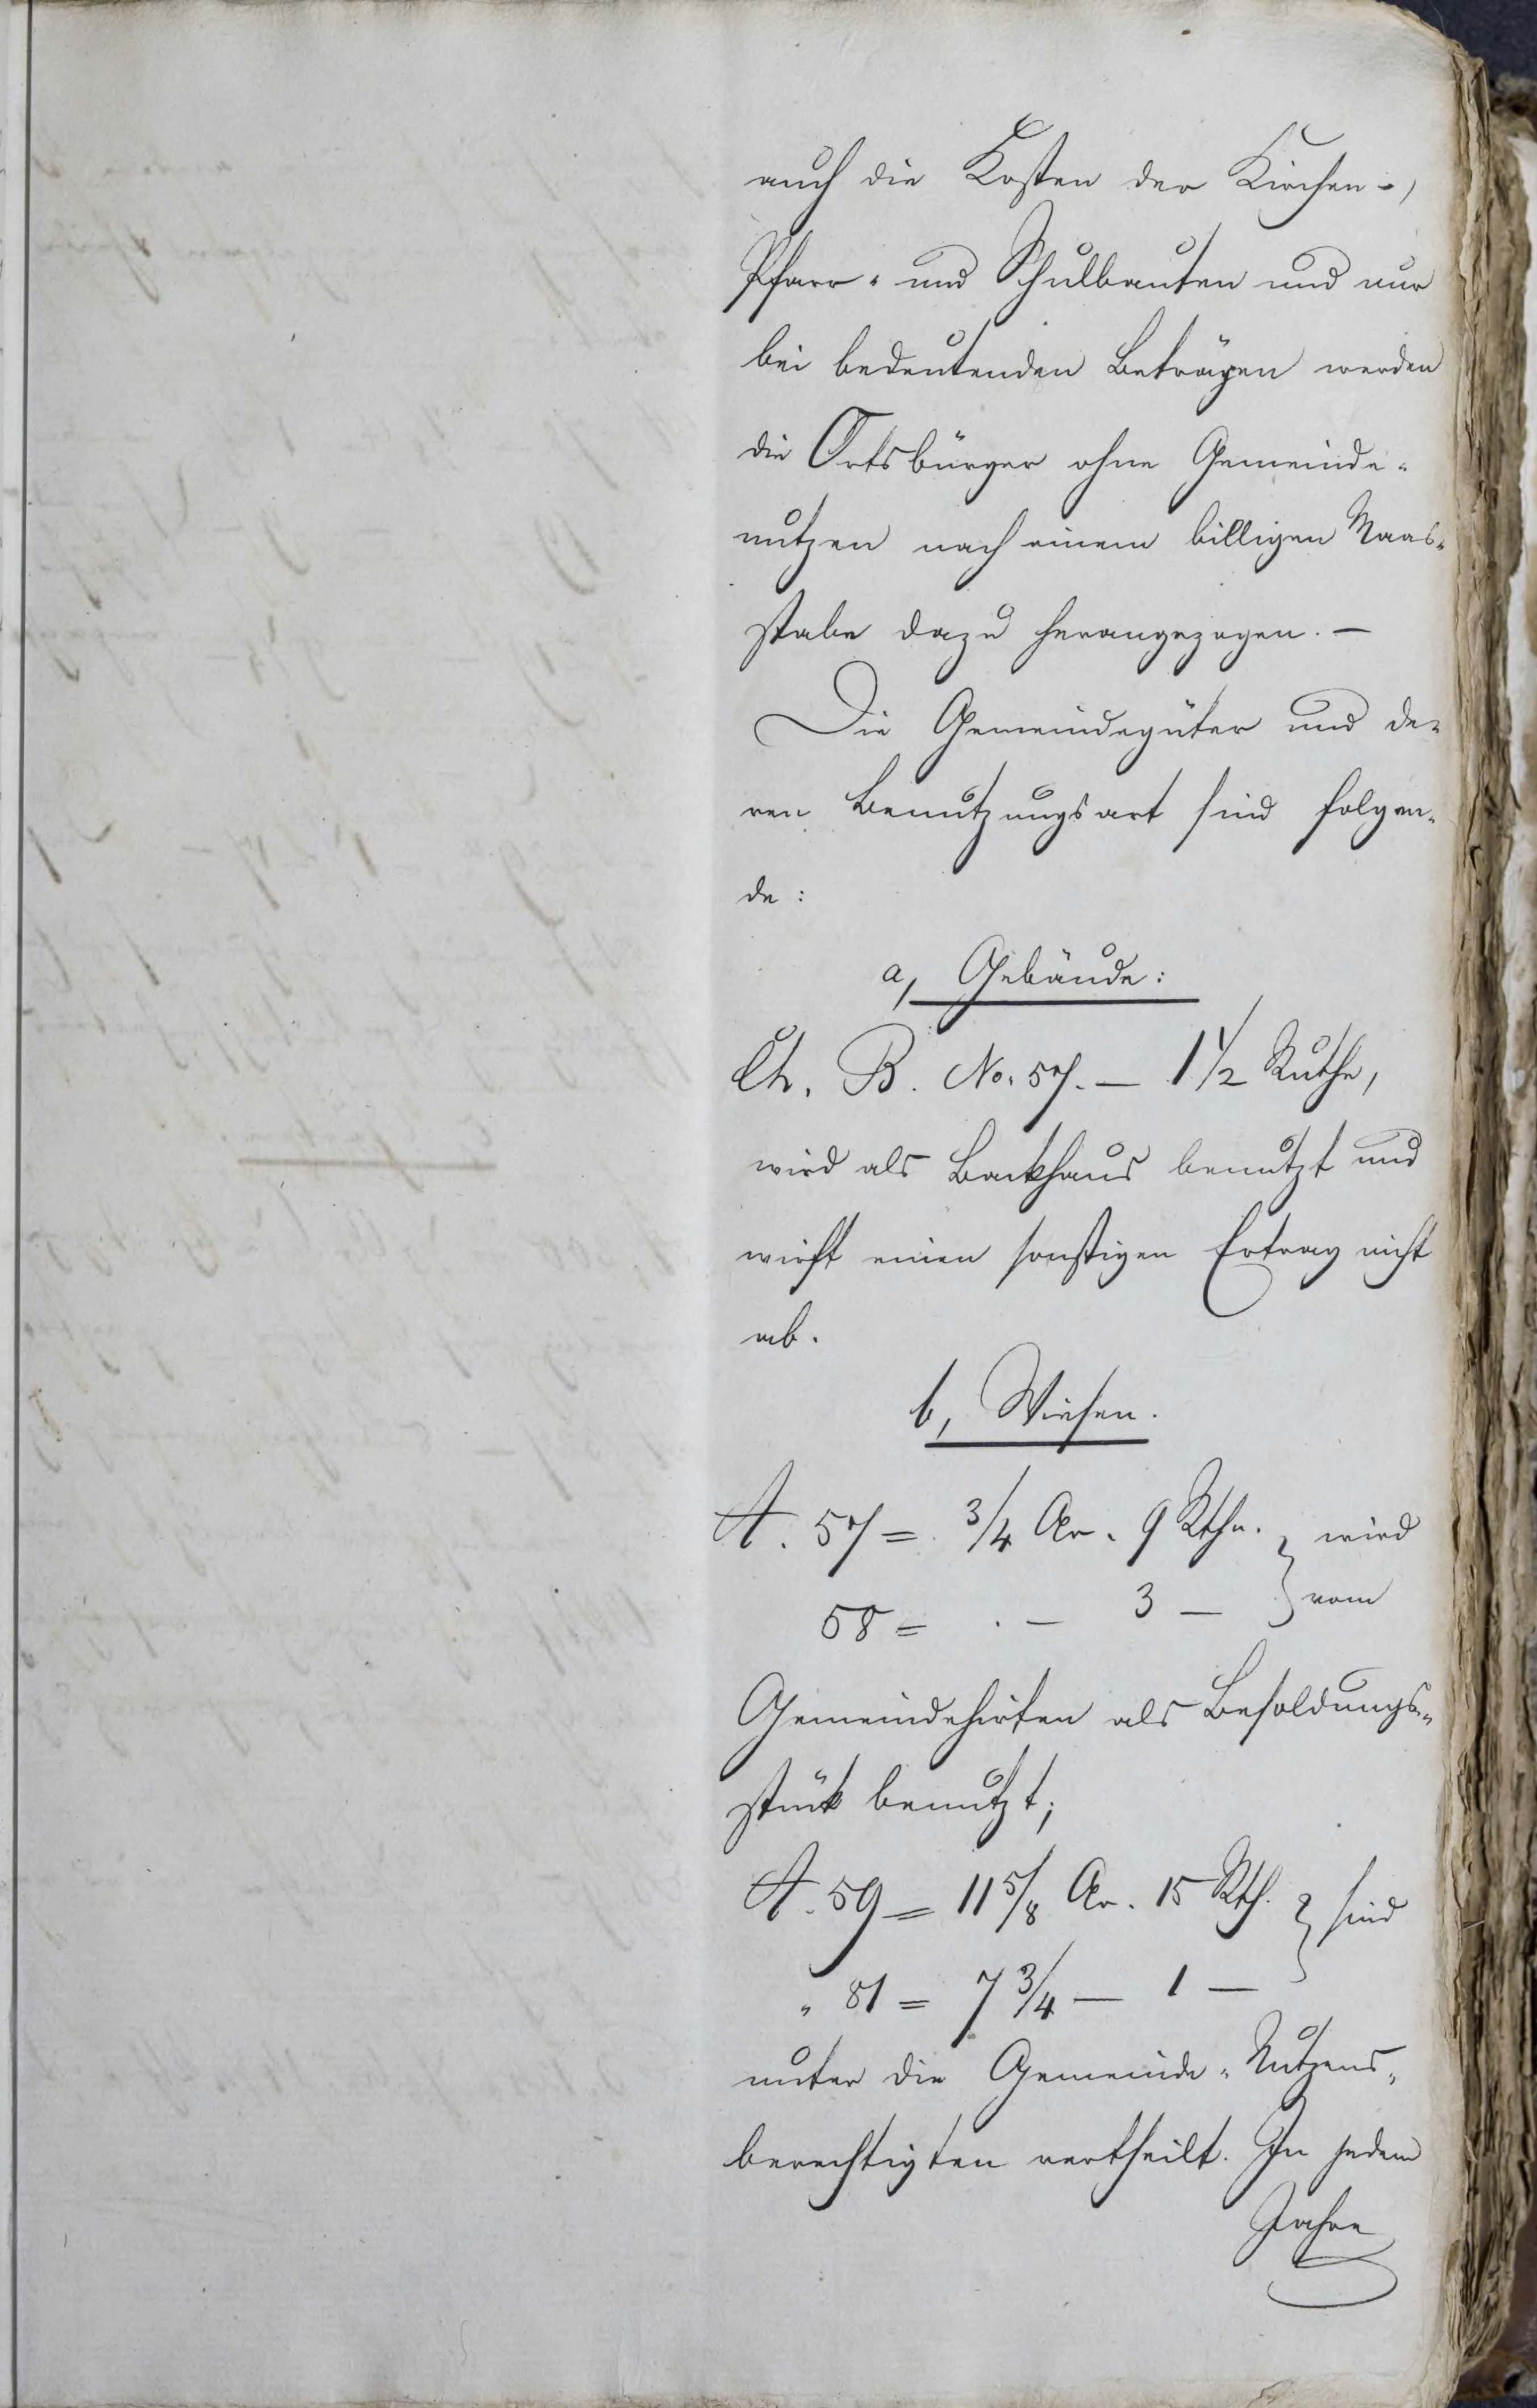 auch die Kosten der Kirchen-,
Pfarr- und Schulbauten und nur
bei bedeutenden Beträgen werden
die Ortsbürger ohne Gemeinde-
nutzen nach einem billigen Maas-
stabe dazu herangezogen. —
Die Gemeindegüter und de-
ren Benutzungsart sind folgen-
de:
a, Gebäude:
Ch. B. No. 57. — 1 1/2 Ruthe,
wird als Backhaus benutzt und
wirft einen sonstigen Ertrag nicht
ab.
b, Wiesen.
A. 57 = 3/4 Ar. 9 Rthn. } wird
58 = . — 3 — } vom
Gemeindehirten als Besoldungs-
stück benutzt;
A. 59 = 11 5/8 Ar. 15 Rth. } sind
" 81 = 7 3/4 — 1 —
unter die Gemeinde-Nutzens-
berechtigten vertheilt. In jedem
Jahre